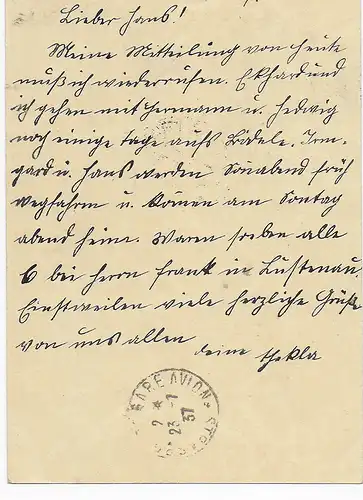 Lieber Hans!
Meine Mitteilung von heute
muß ich wiederrufen. Ekhard und
ich gehen mit Hermann u. Hedwig
noch einige Tage aufs Bödele. Irm-
gard u. Hans werden Sonabend früh
wegfahren u. können am Sontag
abend heim. Waren soeben alle
6 bei Herrn Frank in Lustenau.
Einstweilen viele herzliche Grüße
von uns allen
deine Thekla
GARE AVION
2 *
23 - 7
37